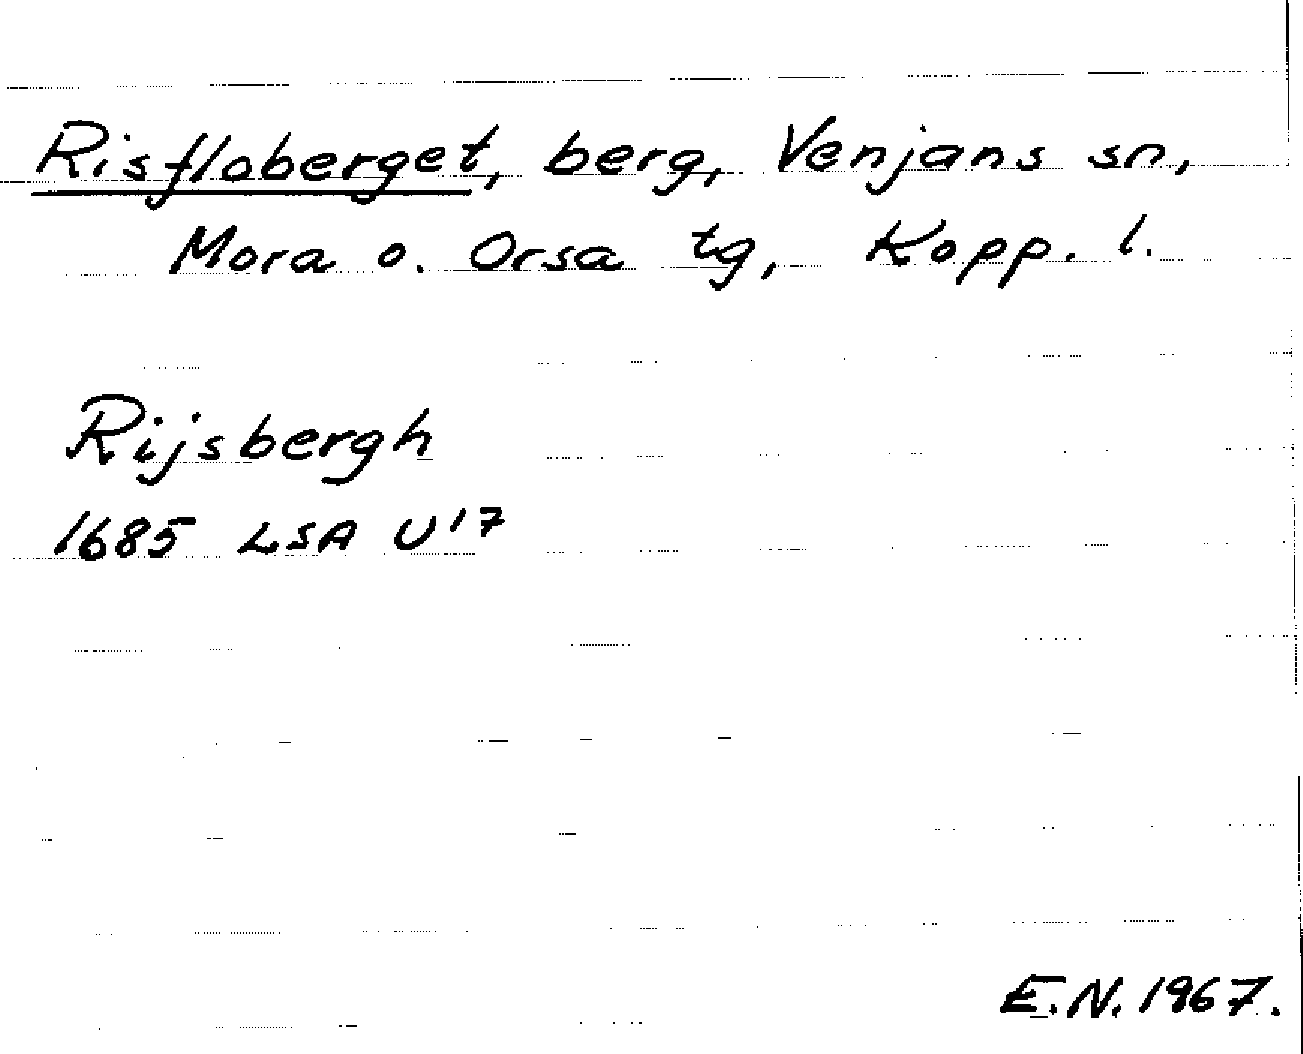 Risfloberget, berg, Venjans sn,
Mora o. Orsa tg, Kopp. l.
Rijsbergh
1685 LSA U17
E.N. 1967.